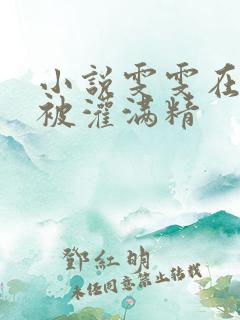 小說雯雯在
被灌满精
鄧紅明
未经同意禁止转载